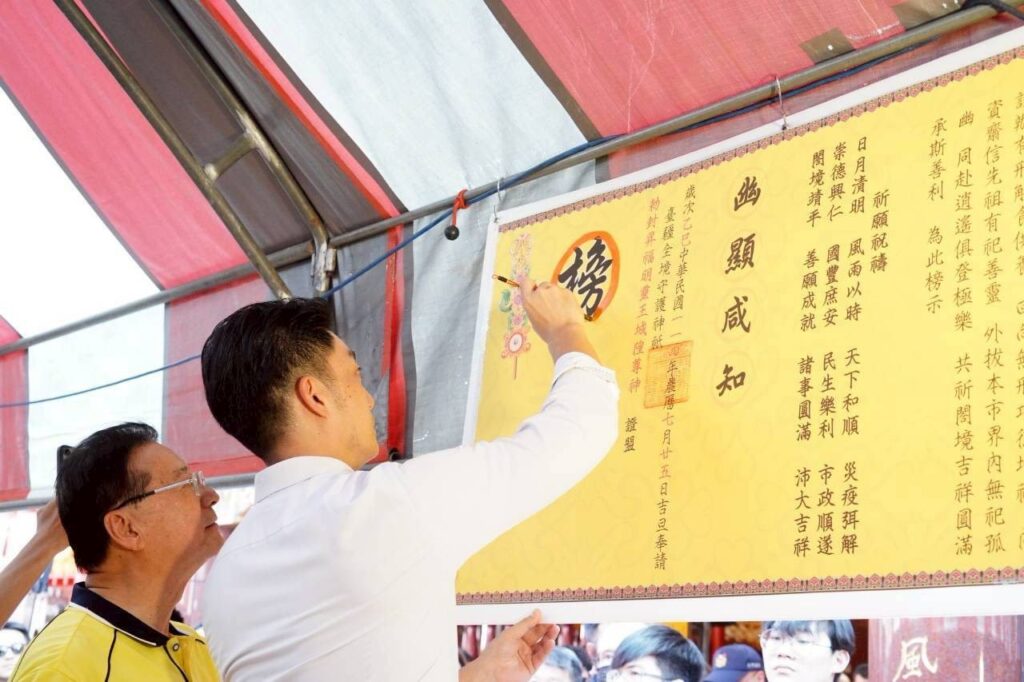 資齋信先祖有祀善靈 外拔本市界內無祀孤
幽 同赴逍遙俱登極樂 共祈閤境吉祥圓滿
承斯善利 為此榜示
祈願祝禱
日月清明 風雨以時 天下和順 災疫弭解
崇德興仁 國豐庶安 民生樂利 市政順遂
閤境靖平 善願成就 諸事圓滿 沛大吉祥
幽顯咸知
歲次乙巳中華民國一一四年農曆七月廿五日吉旦奉請
臺疆全境守護神祇
勅封昇福明靈王城隍尊神 證盟
榜
風